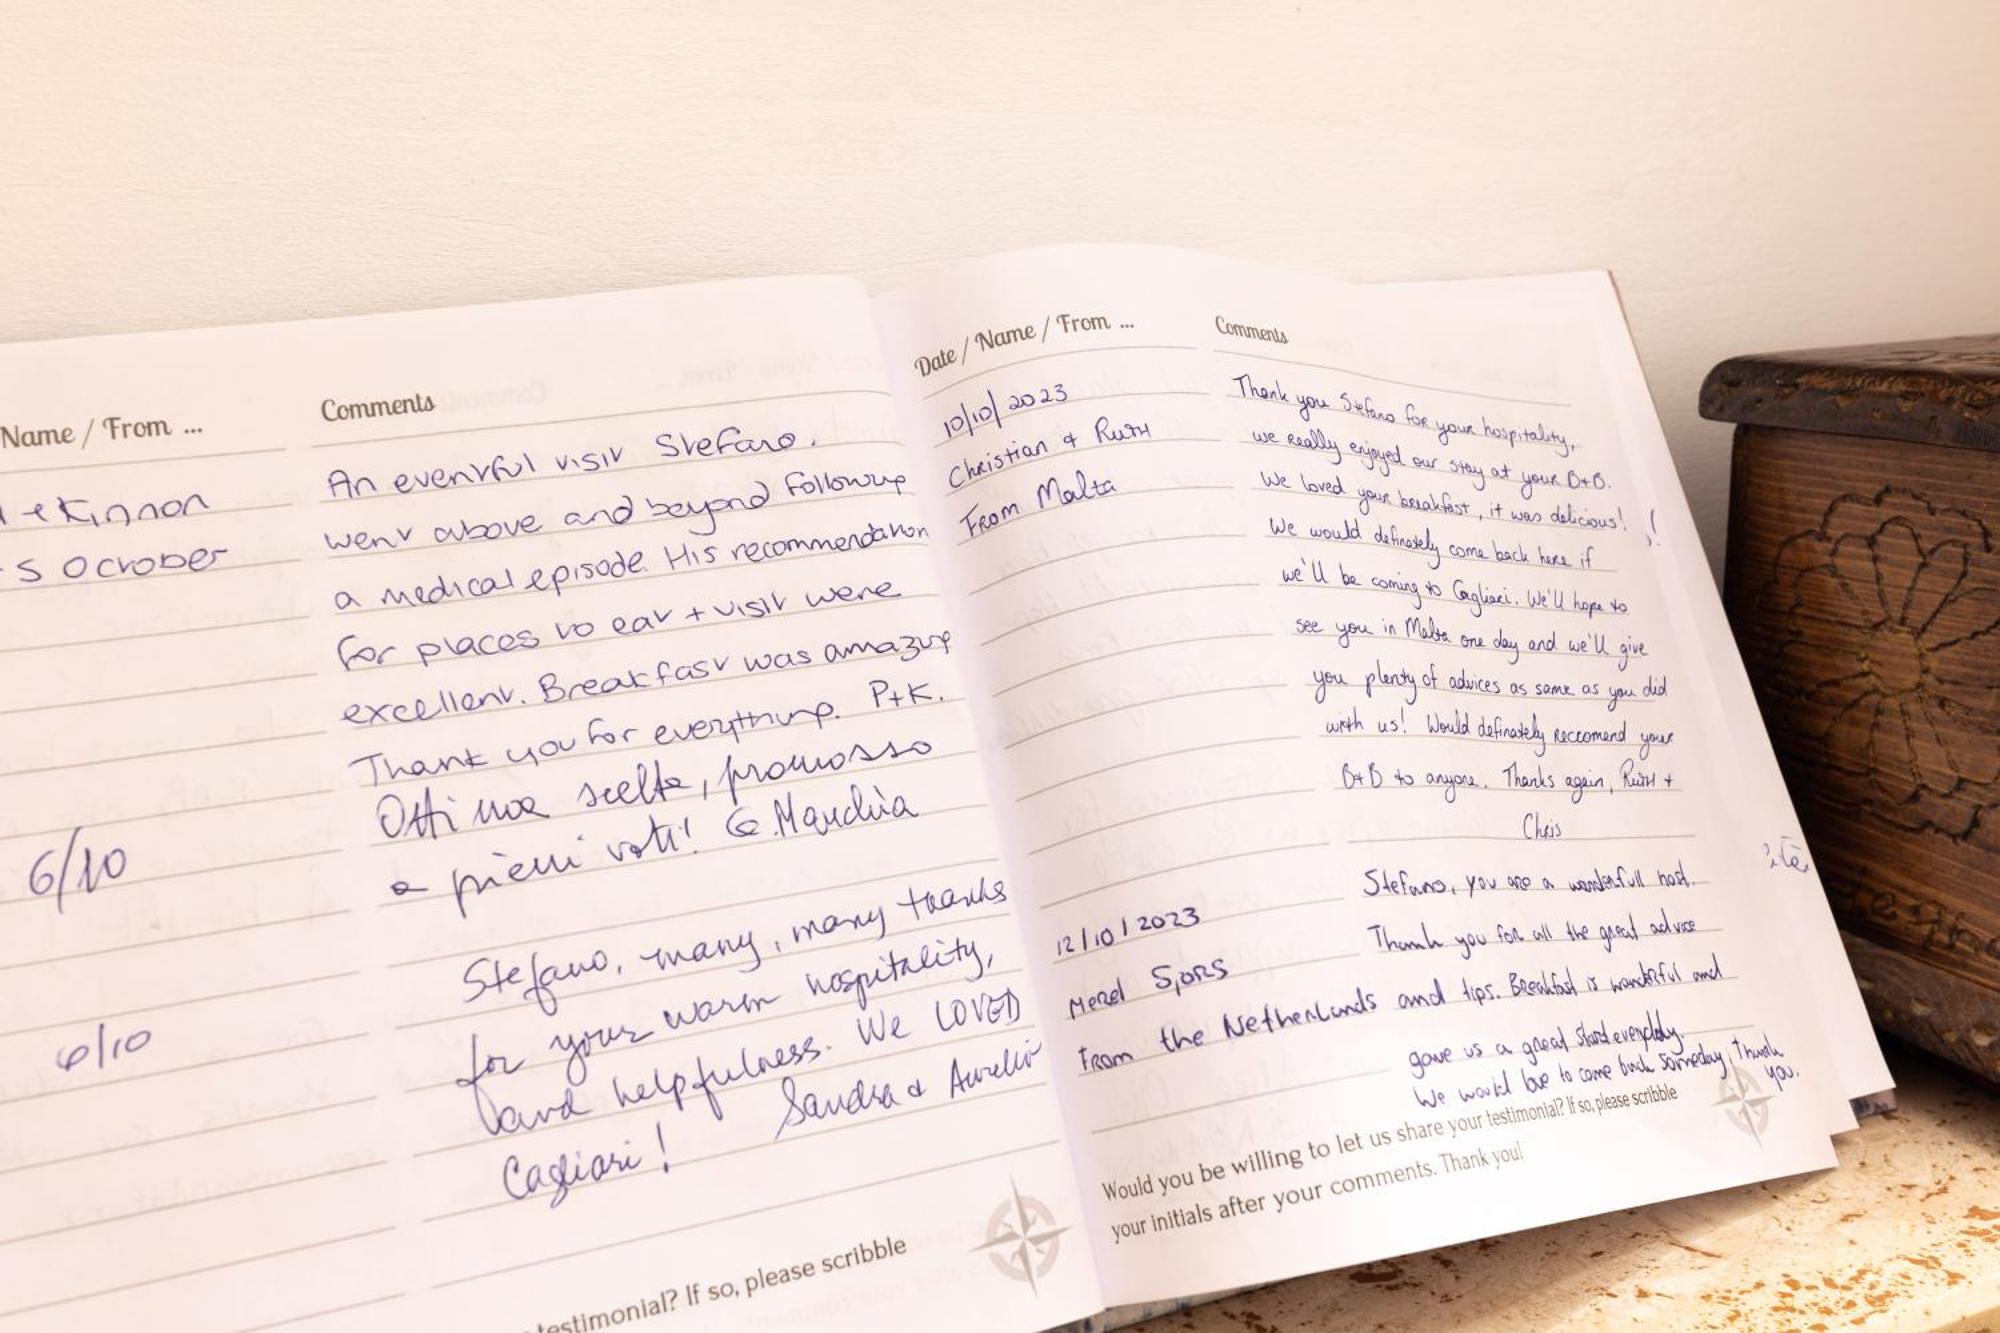 Name / From ...
Comments
Kinnon
5 October
An eventful visit Stefano.
went above and beyond following
a medical episode. His recommendation
for places to eat + visit were
excellent. Breakfast was amazing
Thank you for everything. P+K.
6/10
Ottima scelta, promosso
a pieni voti! G. Marchia
6/10
Stefano, many, many thanks
for your warm hospitality,
and helpfulness. We LOVED
Cagliari! Sandra & Aurelio
testimonial? If so, please scribble
Date / Name / From ...
Comments
10/10/2023
Christian & Ruth
From Malta
Thank you Stefano for your hospitality,
we really enjoyed our stay at your B+B.
We loved your breakfast, it was delicious! !
We would definately come back here if
we'll be coming to Cagliari. We'll hope to
see you in Malta one day and we'll give
you plenty of advices as same as you did
with us! Would definately reccomend your
B+B to anyone. Thanks again, Ruth +
Chris
12/10/2023
Merel
From the Netherlands
Stefano, you are a wonderfull host.
Thank you for all the great advice
and tips. Breakfast is wonderful and
gave us a great start everyday.
We would love to come back someday, Thank
you.
Would you be willing to let us share your testimonial? If so, please scribble
your initials after your comments. Thank you!